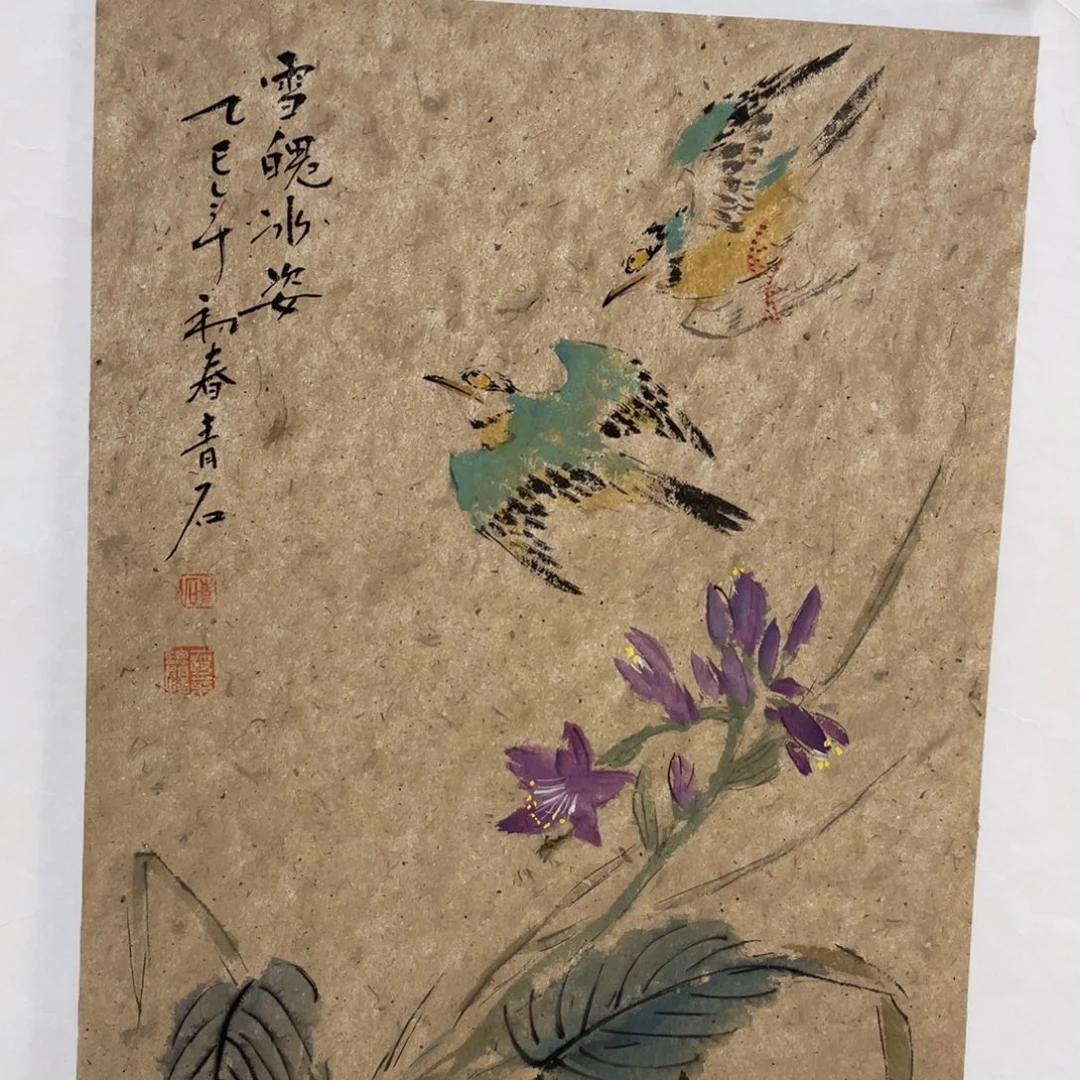 雪魄冰姿
乙巳年初春青石